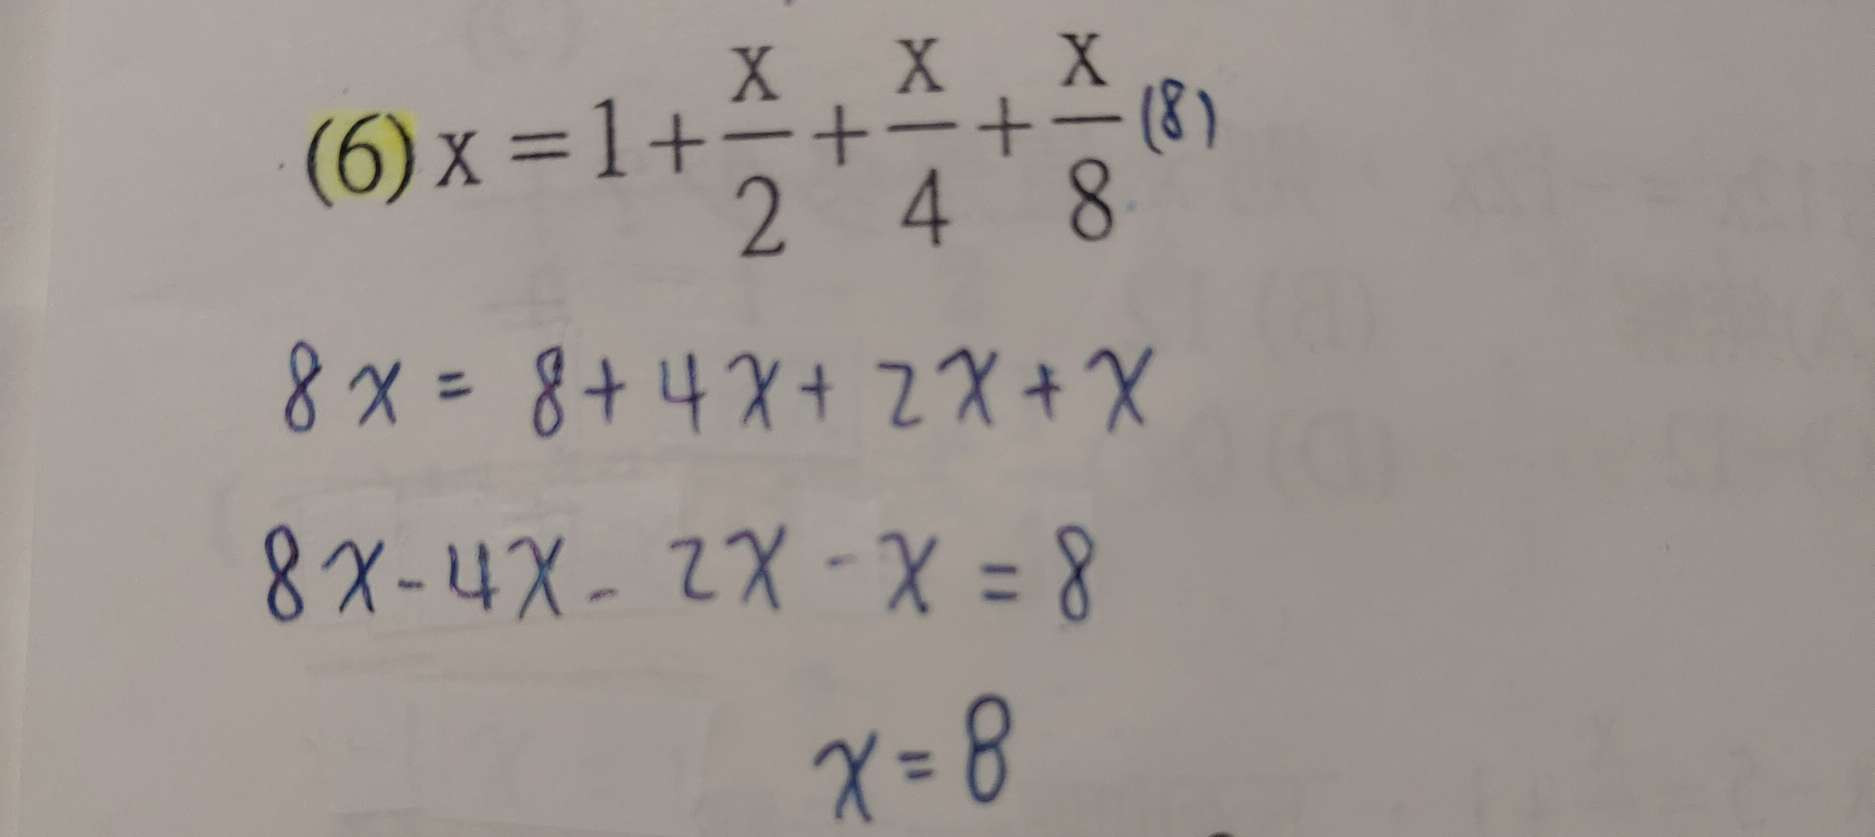 (6) x = 1 + x/2 + x/4 + x/8 (8)
8x = 8 + 4x + 2x + x
8x - 4x - 2x - x = 8
x = 8